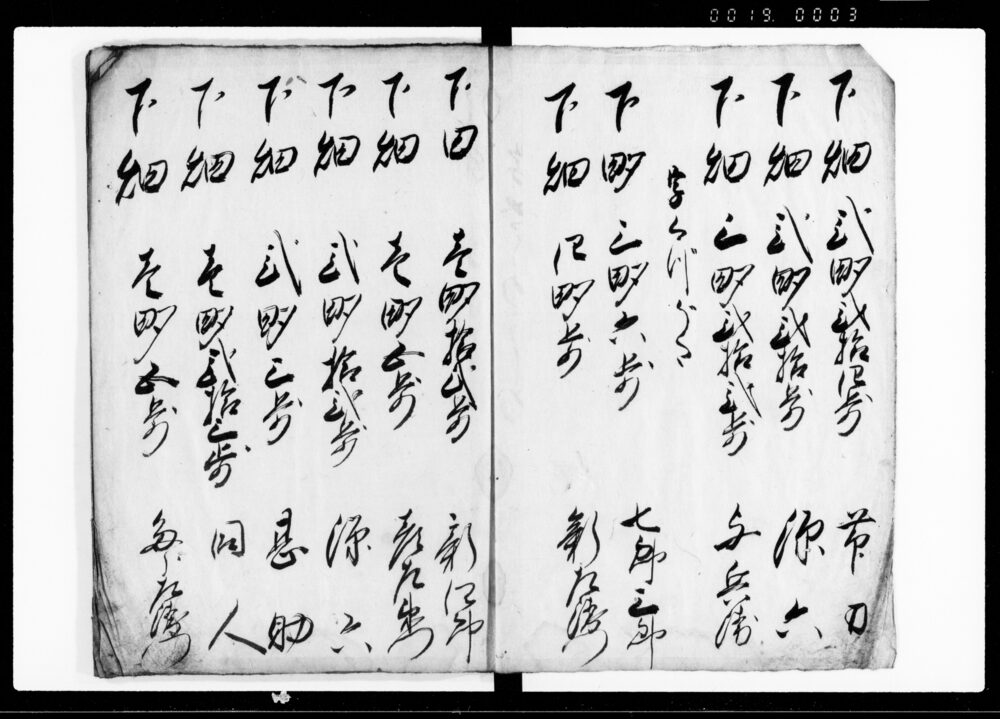 0019. 0003
下畑 弐畝弐拾四歩
下畑 弐畝弐拾歩 源六
下畑 三畝弐拾弐歩 与兵衛
字
下畝 三畝六歩 七郎三郎
下畑 四畝歩 新左衛門
下田 壱畝拾弐歩 新四郎
下畑 壱畝五歩
下畑 弐畝拾弐歩 源六
下畑 弐畝三歩 甚助
下畑 壱畝弐拾三歩 同人
下畑 壱畝五歩